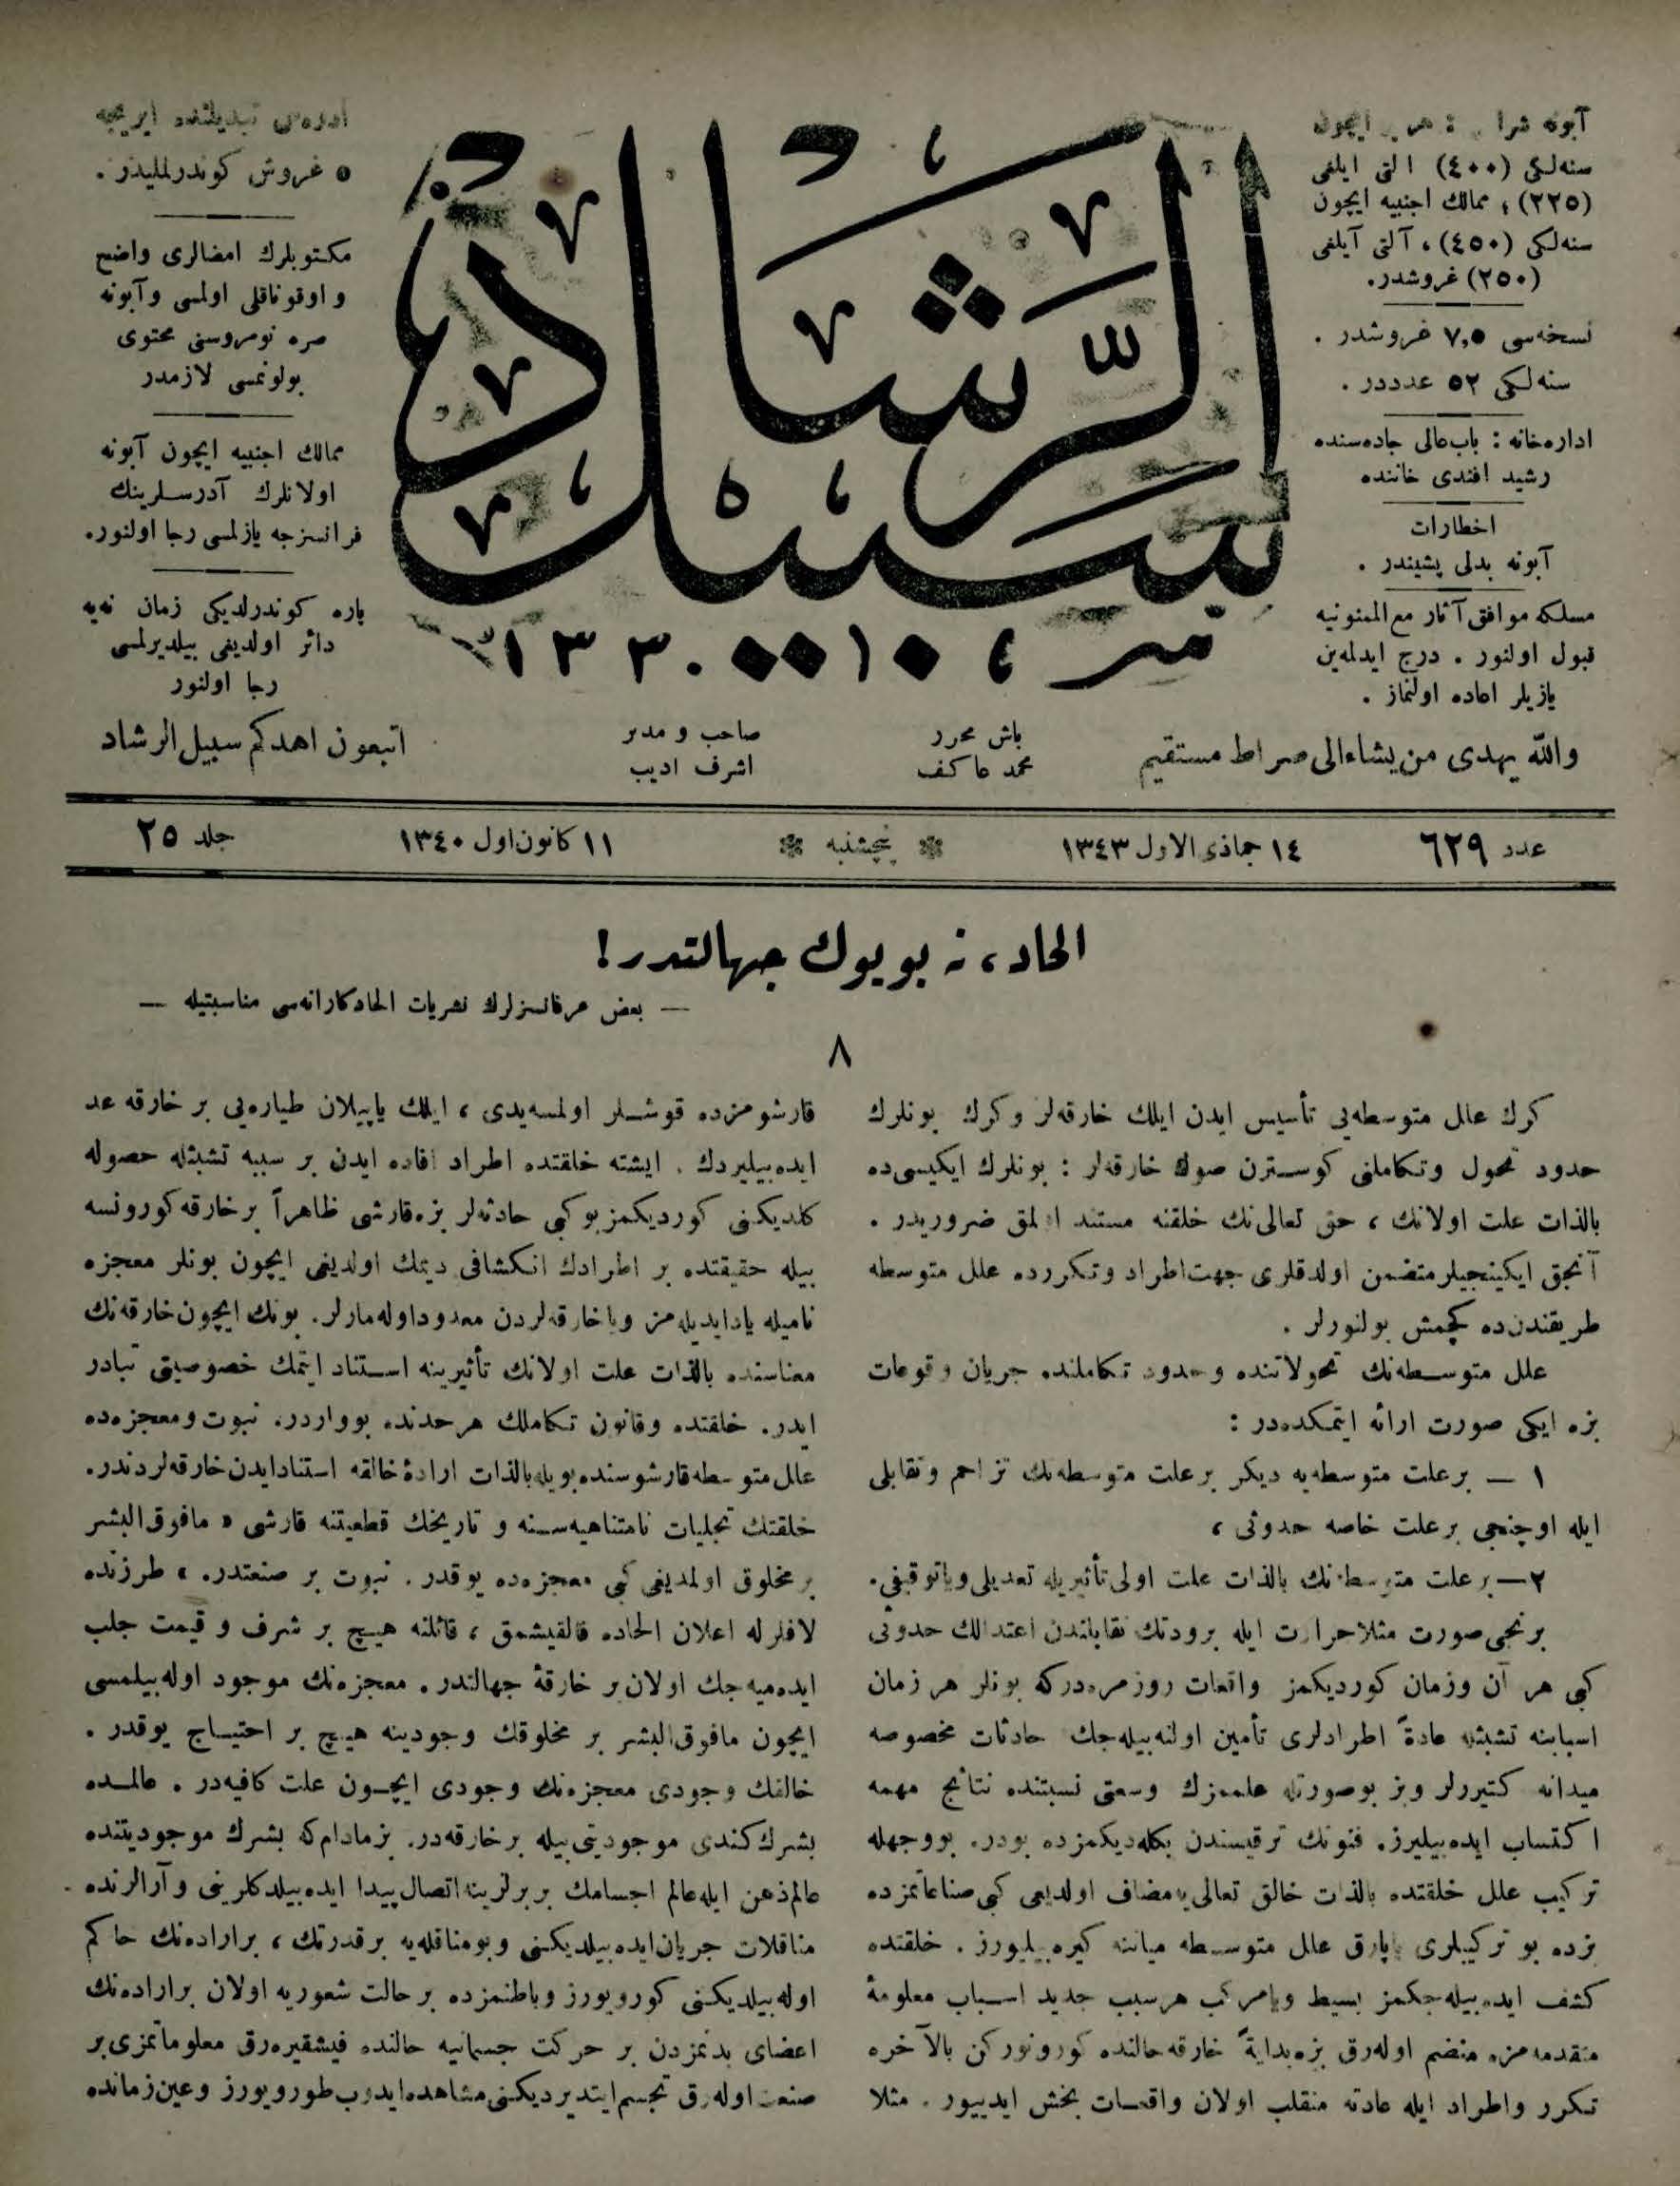 آبونه شرا : هر ایچون
سنه‌لکی (٤٠٠) التی ایلغی
(٢٢٥)، ممالك اجنبیه ایچون
سنه‌لکی (٤٥٠)، آلتی آیلغی
(٢٥٠) غروشدر.
نسخه‌سی ٧,٥ غروشدر .
سنه‌لکی ٥٢ عدددر .
اداره‌خانه : باب‌عالی جاده‌سنده
رشید افندی خاننده
اخطارات
آبونه بدلی پشیندر .
مسلکه موافق آثار مع‌الممنونیه
قبول اولنور . درج ایدلمه‌ین
یازیلر اعاده اولنماز .
سبیل الرشاد
١٣٣٠
اداره‌سی تبدیلنده ایریجه
٥ غروش کوندرلملیدر .
مکتوبلرك امضالری واضح
و اوقوناقلی اولمسی وآبونه
صره نومروسنی محتوی
بولونمسی لازمدر
ممالك اجنبیه ایچون آبونه
اولانلرك آدرسلرینك
فرانسزجه یازلمسی رجا اولنور.
پاره کوندرلدیکی زمان نه‌یه
دائر اولدیغی بیلدیرلمسی
رجا اولنور
والله یهدی من یشاء الی صراط مستقیم
باش محرر
محمد عاکف
صاحب و مدیر
اشرف ادیب
اتبعون اهدکم سبیل الرشاد
عدد ٦٢٩
١٤ جماذی الاول ١٣٤٣
پنجشنبه
١١ کانون اول ١٣٤٠
جلد ٢٥
الحاد، نه بویوك جهالتدر!
— بعض عرفانسزلرك نشریات الحادکارانه‌سی مناسبتیله —
٨
کرك علل متوسطه‌یی تأسیس ایدن ایلك خارقه‌لر وکرك بونلرك
حدود تحول وتکاملنی کوسترن صوك خارقه‌لر : بونلرك ایکیسی‌ده
بالذات علت اولانك ، حق تعالی‌نك خلقنه مستند اولمق ضروریدر .
آنجق ایکینجیلر متضمن اولدقلری جهت‌اطراد وتکررده علل متوسطه
طریقندن‌ده کچمش بولنورلر .
علل متوسطه‌نك تحولاتنده وحدود تکاملنده جریان وقوعات
بزه ایکی صورت ارائه ایتمکده‌در :
١ — برعلت متوسطه‌یه دیکر برعلت متوسطه‌نك تزاحم وتقابلی
ایله اوچنجی برعلت خاصه حدوثی ،
٢— برعلت متوسطه‌نك بالذات علت اولی تأثیریله تعدیلی ویاتوقیفی.
برنجی صورت مثلا حرارت ایله برودتك تقابلندن اعتدالك حدوثی
کبی هر آن وزمان کوردیکمز واقعات روزمره‌درکه بونلر هر زمان
اسبابنه تشبثله عادةً اطرادلری تأمین اولنه‌بیله‌جك حادثات مخصوصه
میدانه کتیررلر وبز بوصورتله علممزك وسعتی نسبتنده نتائج مهمه
اکتساب ایده‌بیلیرز. فنونك ترقیسندن بکله‌دیکمزده بودر. بووجهله
ترکیب علل خلقتده بالذات خالق تعالی‌یه مضاف اولدیغی کبی صناعاتمزده
بزده بو ترکیبلری یاپارق علل متوسطه میاننه کیره‌بیلیورز . خلقتده
کشف ایده‌بیله‌جکمز بسیط ویامرکب هرسبب جدید اسباب معلومهٔ
متقدمه‌مزه منضم اوله‌رق بزه‌بدایةً خارقه‌حالنده کورونورکن بالآخره
تکرر واطراد ایله عادته منقلب اولان واقعات بخش ایدییور . مثلا
قارشومزده قوشلر اولمسه‌یدی ، ایلك یاپیلان طیاره‌یی بر خارقه عد
ایده‌بیلیردك . ایشته خلقتده اطراد افاده ایدن بر سببه تشبثله حصوله
کلدیکنی کوردیکمز بوکبی حادثه‌لر بزه‌قارشی ظاهراً برخارقه کورونسه
بیله حقیقتده بر اطرادك انکشافی دیمك اولدیغی ایچون بونلر معجزه
نامیله یادایدیله‌مز ویاخارقه‌لردن معدوداوله‌مازلر. بونك ایچون خارقه‌نك
معناسنده بالذات علت اولانك تأثیرینه استناد ایتمك خصوصیتی تبادر
ایدر. خلقتده وقانون تکاملك هرحدنده بوواردر. نبوت ومعجزه‌ده
علل متوسطه‌قارشوسنده‌بویله‌بالذات ارادهٔ‌خالقه استنادایدن‌خارقه‌لردندر.
خلقتك تجلیات نامتناهیه‌سنه و تاریخك قطعیتنه قارشی « مافوق‌البشر
بر مخلوق اولمدیغی کبی معجزه‌ده یوقدر . نبوت بر صنعتدر. » طرزنده
لافلرله اعلان الحاده قالقیشمق ، قائلنه هیچ بر شرف و قیمت جلب
ایده‌میه‌جك اولان بر خارقهٔ جهالتدر . معجزه‌نك موجود اوله‌بیلمسی
ایچون مافوق‌البشر بر مخلوقك وجودینه هیچ بر احتیاج یوقدر .
خالقك وجودی معجزه‌نك وجودی ایچون علت کافیه‌در . عالمده
بشرك کندی موجودیتی بیله برخارقه‌در. بزمادام‌که بشرك موجودیتنده
عالم‌ذهن ایله‌عالم اجسامك بربرلرینه‌اتصال پیدا ایده‌بیلدکلرینی وآرالرنده
مناقلات جریان‌ایده‌بیلدیکنی وبومناقله‌یه برقدرتك ، براراده‌نك حاکم
اوله‌بیلدیکنی کورویورز وباطنمزده برحالت شعوریه اولان براراده‌نك
اعضای بدنمزدن بر حرکت جسمانیه حالنده فیشقیره‌رق معلوماتمزی‌بر
صنعت اوله‌رق تجسم ایتدیردیکنی مشاهده‌ایدوب‌طورویورز وعین‌زمانده